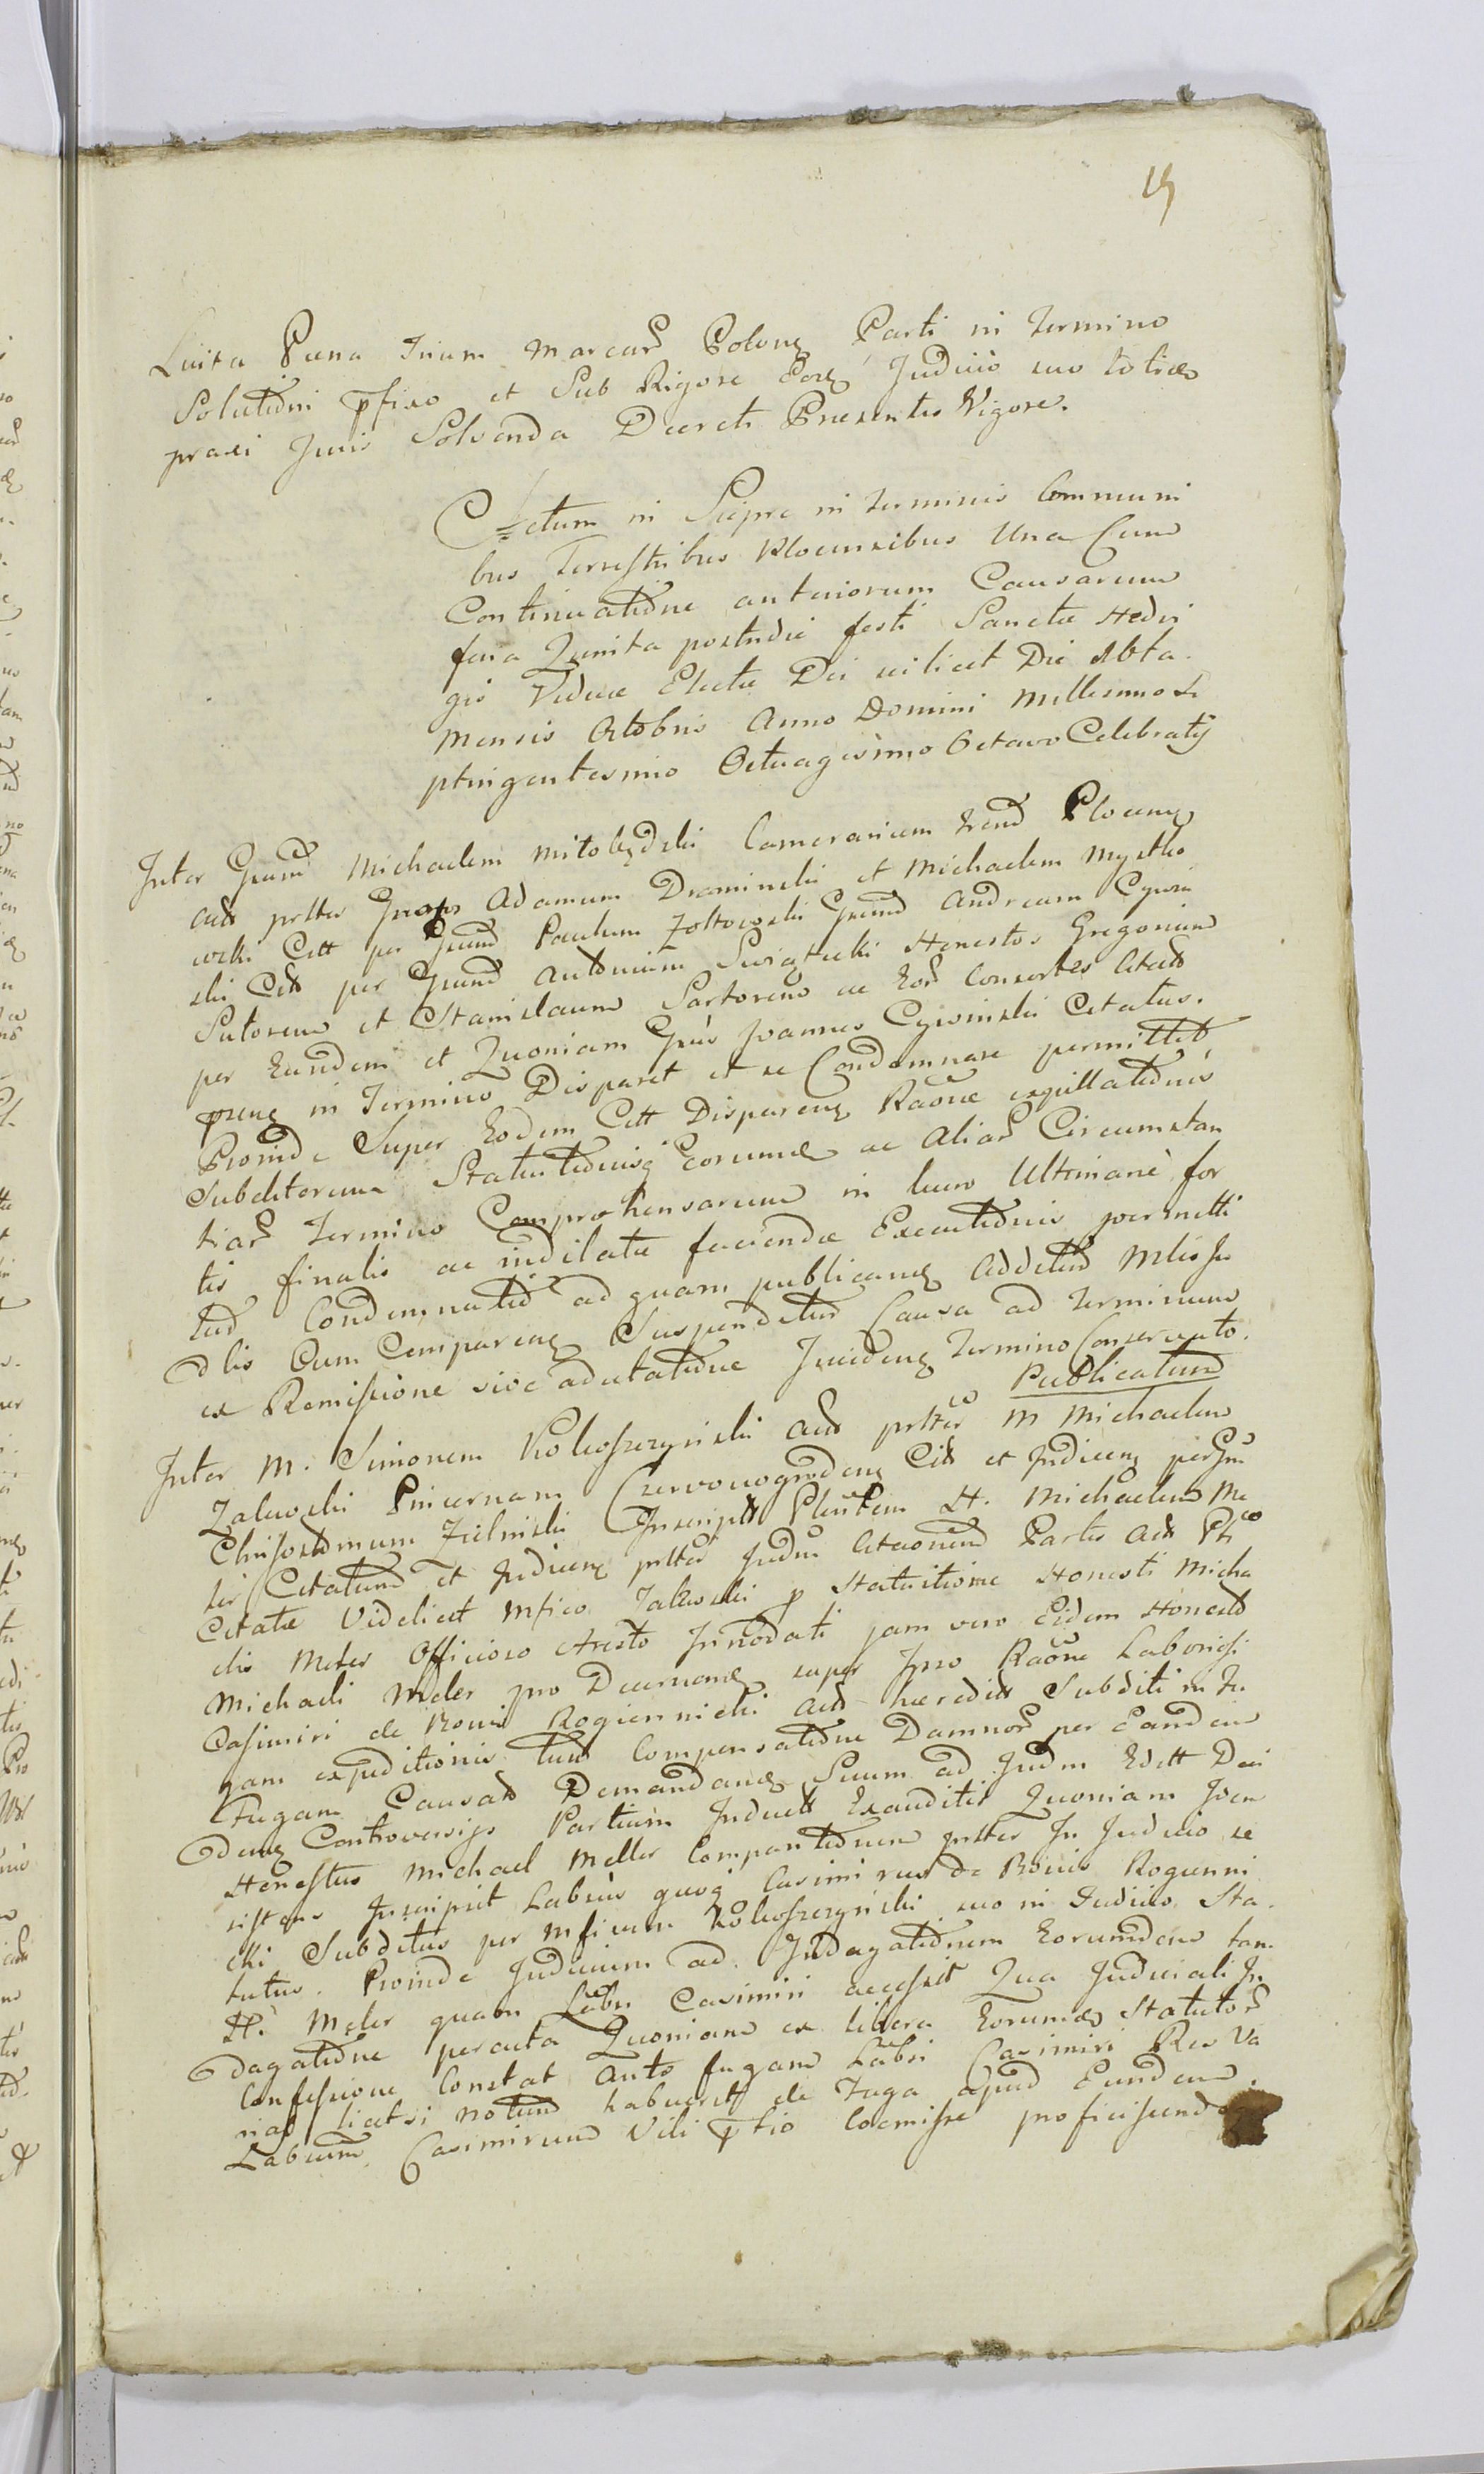 19
Luita Paena Trium Marcar Polon Parti in Termino
Solutioni pfixo et Sub Rigore Judicio suo toties
praxi Juris Solvenda Decreti Praesentis Vigore.
Actum in Sierpc in Terminis Communi
bus Terrestribus Plocensibus Una Cum
Continuatione anteriorum Causarum
feria Quinta postridie festi Sanctae Hedvi
gis Viduae Electae Dei scilicet Die
Mensis Octobris Anno Domini Millesimo Se
ptingentesimo Octuagesimo Octavo Celebratis
Inter Gnum Michaelem Mitolędzki Camerarium Trend Plocen
act prtter Adamum Draminski et Michaelem Mystko
wski Citt per Gnum Paulum Zoltowski Gnum Andream Cywin
ski Citt per Gnum Antonium Swięcicki Honestos Gregorium
Sutorem et Stanislaum Sartorem ac Eor Consortes Citatt
per Eundem et Quoniam Gnus Joannes Cywinski Citatus.
pren in Termino Disparet et se Condemnare permittit
Proinde Super Eodem Citt Disparen Raone
Subditorum Statuitionisq eorumd ac Aliar Circumstan
tiar Termino Comprehensarum in lucro Ultimarie for
tis finalis ac indilatae faciendae Executionis permitti
tur Condemnatio ad quam publicand Additur Mlis Ju
dlis Cum Comparen Suspenditur Causa ad Terminum
ex Remissione sive adcitatione Inciden Termino Conservato.
Publicatum
Inter M. Simonem Koloszczynski act prtter M Michaelem
Zalewski Pincernam Czerwonogroden Citt et Judicen per Gnum
Chrisostomum Zielinski Inscript Plentem H. Michaelem Me
ler Citatum et Judicen prtter Judm Citaonem Partis Act
Citatae Videlicet Mfico Zalewski p Statuitione Honesti Micha
elis Meler Officioso Aresto Innodati jam vero Eidem Honesto
Michaeli Meler pro Decernend super Ipso Raone Laboriosi
Casimiri de Bonis Rogiennicki act haeredit Subditi in Fu
gam expeditionis tum Compensatione Damnor per Eandem
Fugam Causat Demandand Suum ad Judm Editt Dici
den Controversijs Partium Induct Exauditis Quoniam Idem
Honestus Michael Meller Comparitionem prtter In Judicio se
sistens Inscripsit Labsus quoq Casimirus de Bonis Rogienni
cki Subditus per Mficum Koloszczynski suo in Judicio Sta
tutus. Proinde Judicium ad Indagationem Eorumdem tam
H. Meler quam Labri Casimiri accessit Qua Judiciali In
dagatione peracta Quoniam ex libera Eorumd Statutor
Confessione Constat Ante fugam Labri Casimiri Res Va
rias licet si notum habuerit de Fuga apud Eundem.
Labrum Casimirum Vili ptio Coemisse proficiscend